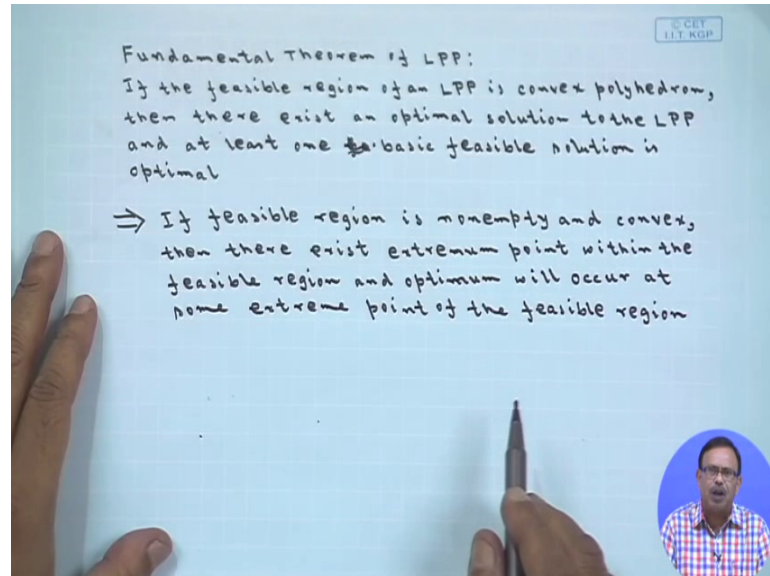 © CET
I.I.T. KGP
Fundamental Theorem of LPP:
If the feasible region of an LPP is convex polyhedron,
then there exist an optimal solution to the LPP
and at least one basic feasible solution is
optimal
⇒ If feasible region is nonempty and convex,
then there exist extremum point within the
feasible region and optimum will occur at
some extreme point of the feasible region